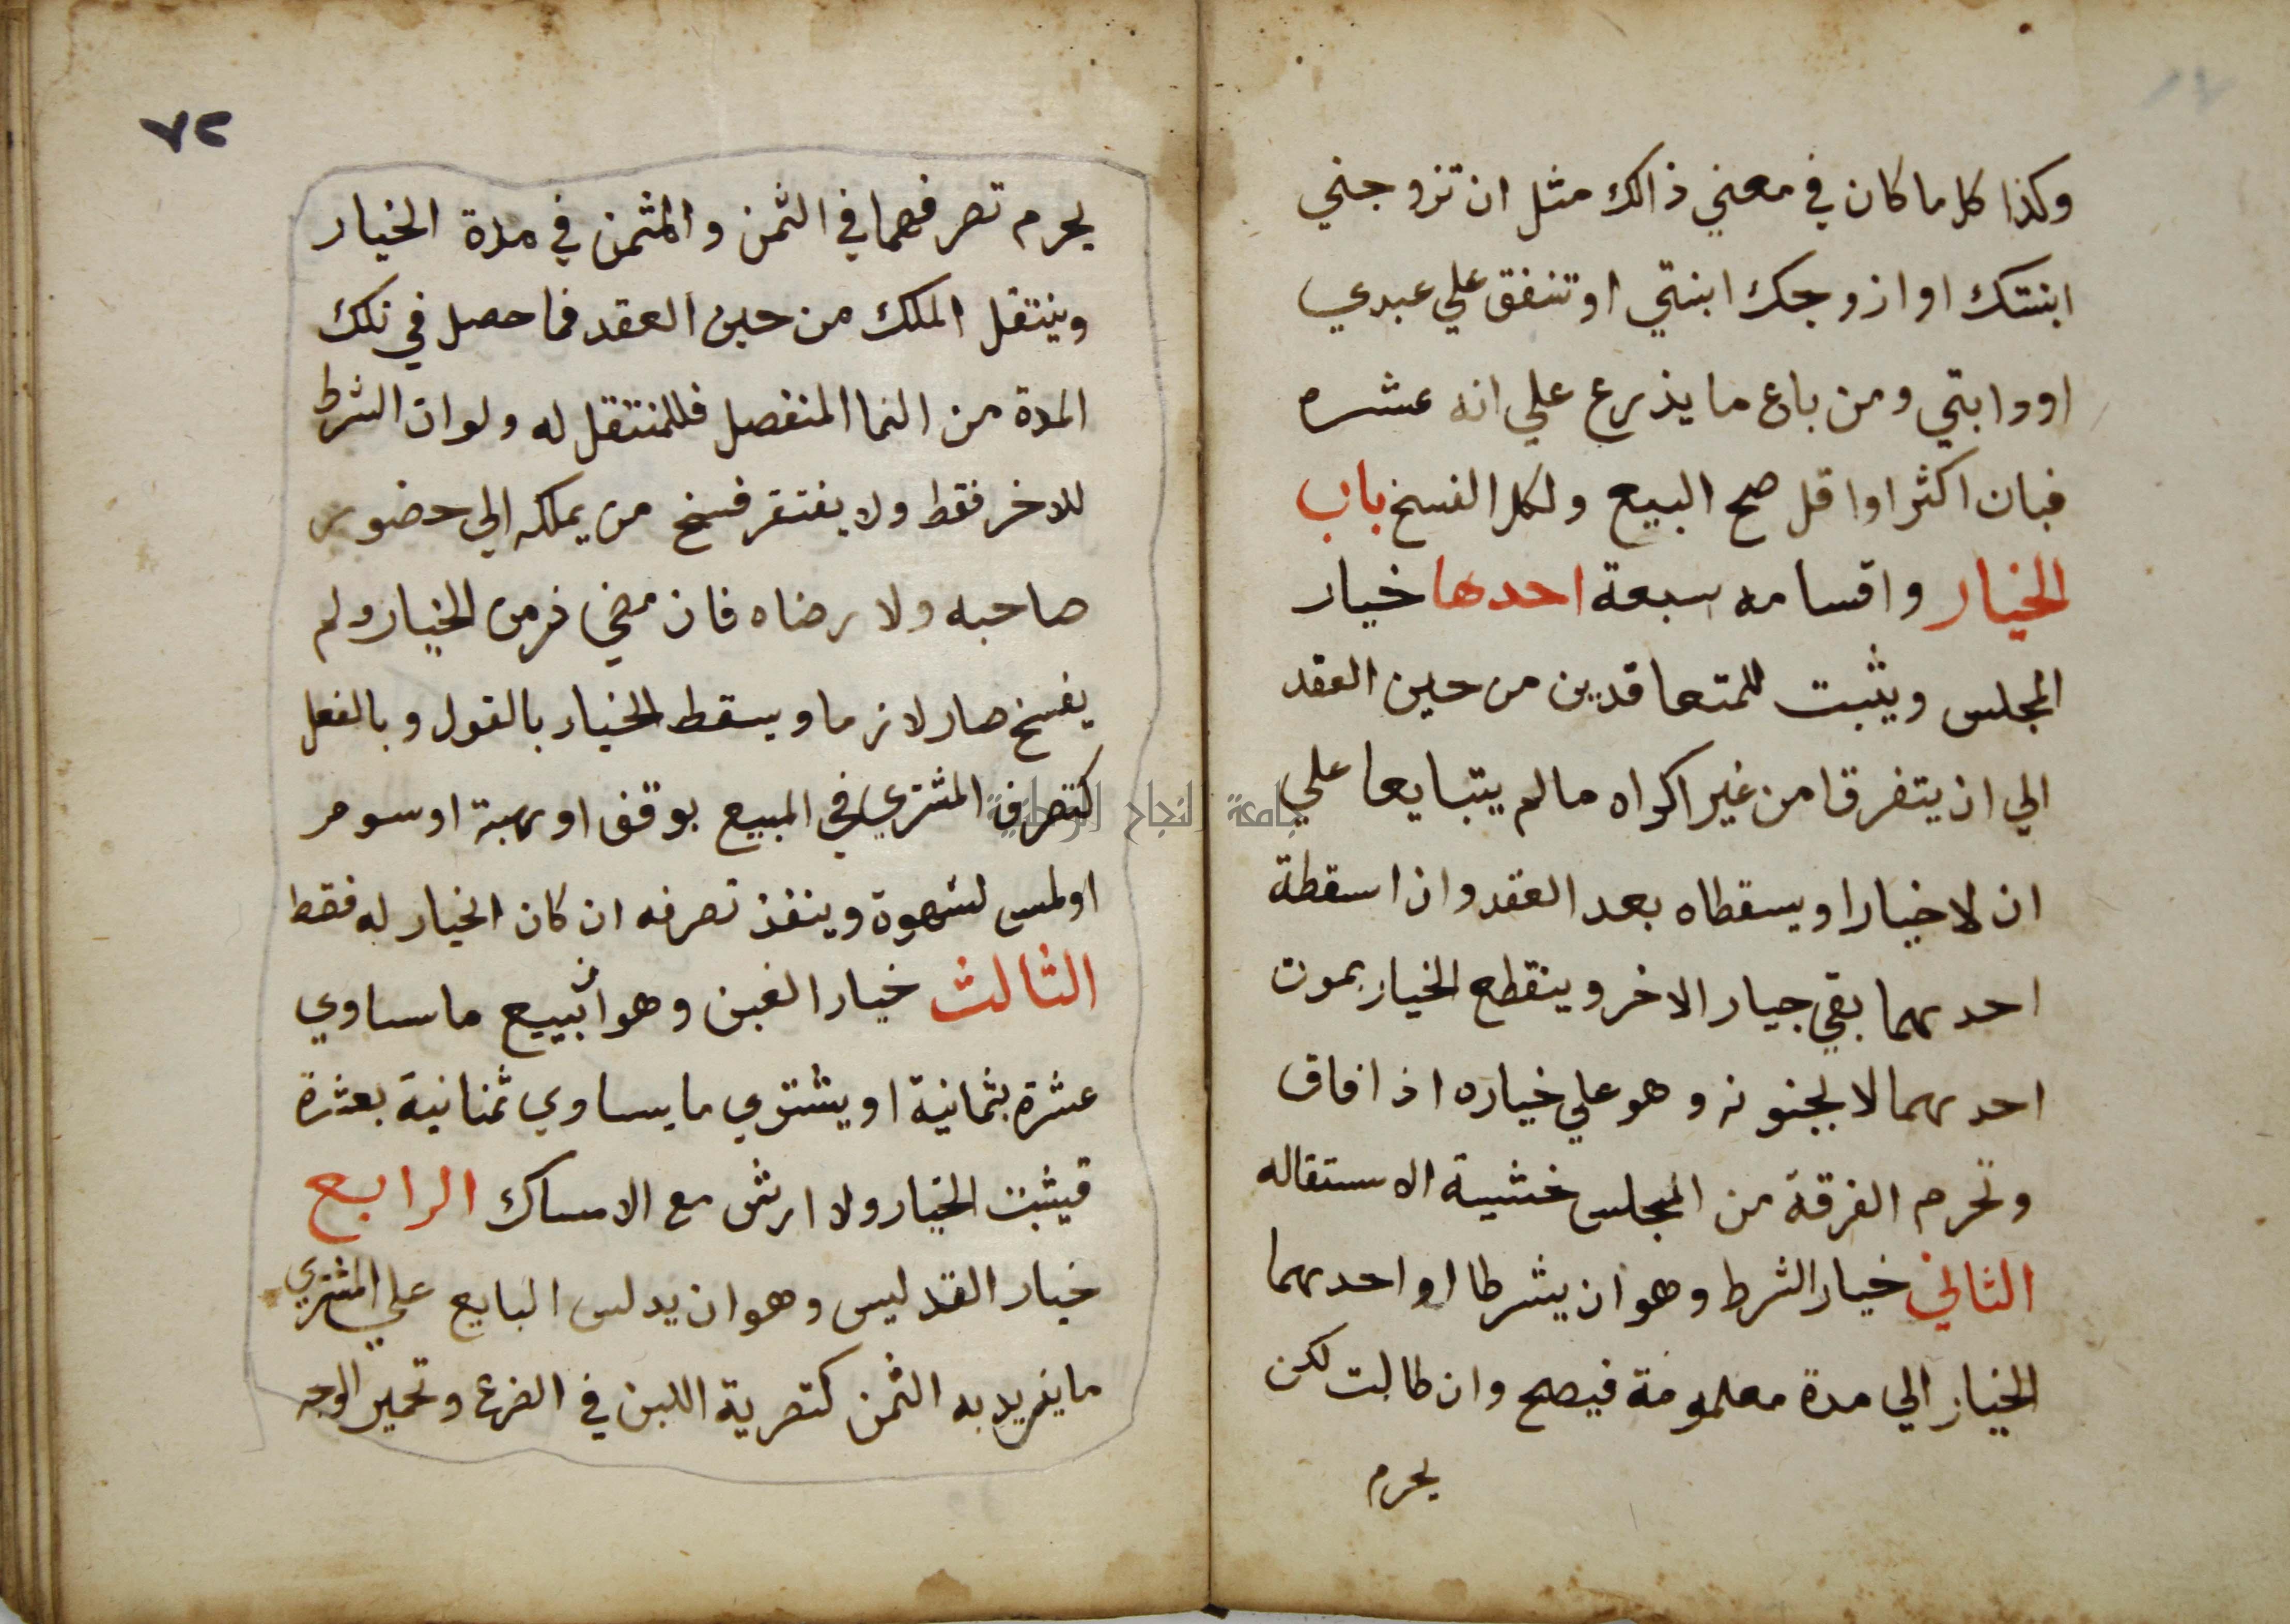 وكذا كلما كان في معني ذالك مثل ان تزوجني
ابنتك او ازوجك ابنتي او تنفق علي عبدي
او دابتي ومن باع ما يذرع علي انه عشره
فبان اكثر او اقل صح البيع ولكل الفسخ باب
الخيار واقسامه سبعة احدها خيار
المجلس ويثبت للمتعاقدين من حين العقد
الي ان يتفرقا من غير اكراه مالم يتبايعا علي
ان لا خيار او يسقطاه بعد العقد واذا سقطة
احدهما بقي خيار الاخر وينقطع الخيار بموت
احدهما لا بجنونه وهو علي خياره اذا فاق
وتحرم الفرقة من المجلس خشية الاستقاله
الثاني خيار الشرط وهو ان يشرطا او احدهما
الخيار الي مدة معلومة فيصح وان طالت لكن
يحرم
٧٢
يحرم تصرفهما في الثمن والمثمن في مدة الخيار
وينتقل الملك من حين العقد فما حصل في تلك
المدة من النما المنفصل فللمنتقل له ولو ان الشرط
للاخر فقط ولا يفتقر فسخ من يملكه الي حضور
صاحبه ولا رضاه فان مضي زمن الخيار ولم
يفسخ صار لازما ويسقط الخيار بالقول وبالفعل
كتصرف المشتري في المبيع بوقف او هبة او سوم
او لمس لشهوة وينفذ تصرفه ان كان الخيار له فقط
الثالث خيار الغبن وهو ان يبيع ما ساوي
عشرة بثمانية او يشتري ما يساوي ثمنانية بعشرة
فيثبت الخيار ولا ارش مع الامساك الرابع
خيار التدليس وهو ان يدلس البايع علي المشتري
ما يزيد به الثمن كتصرية اللبن في الضرع وتحمير الوجه
جامعة النجاح الوطنية